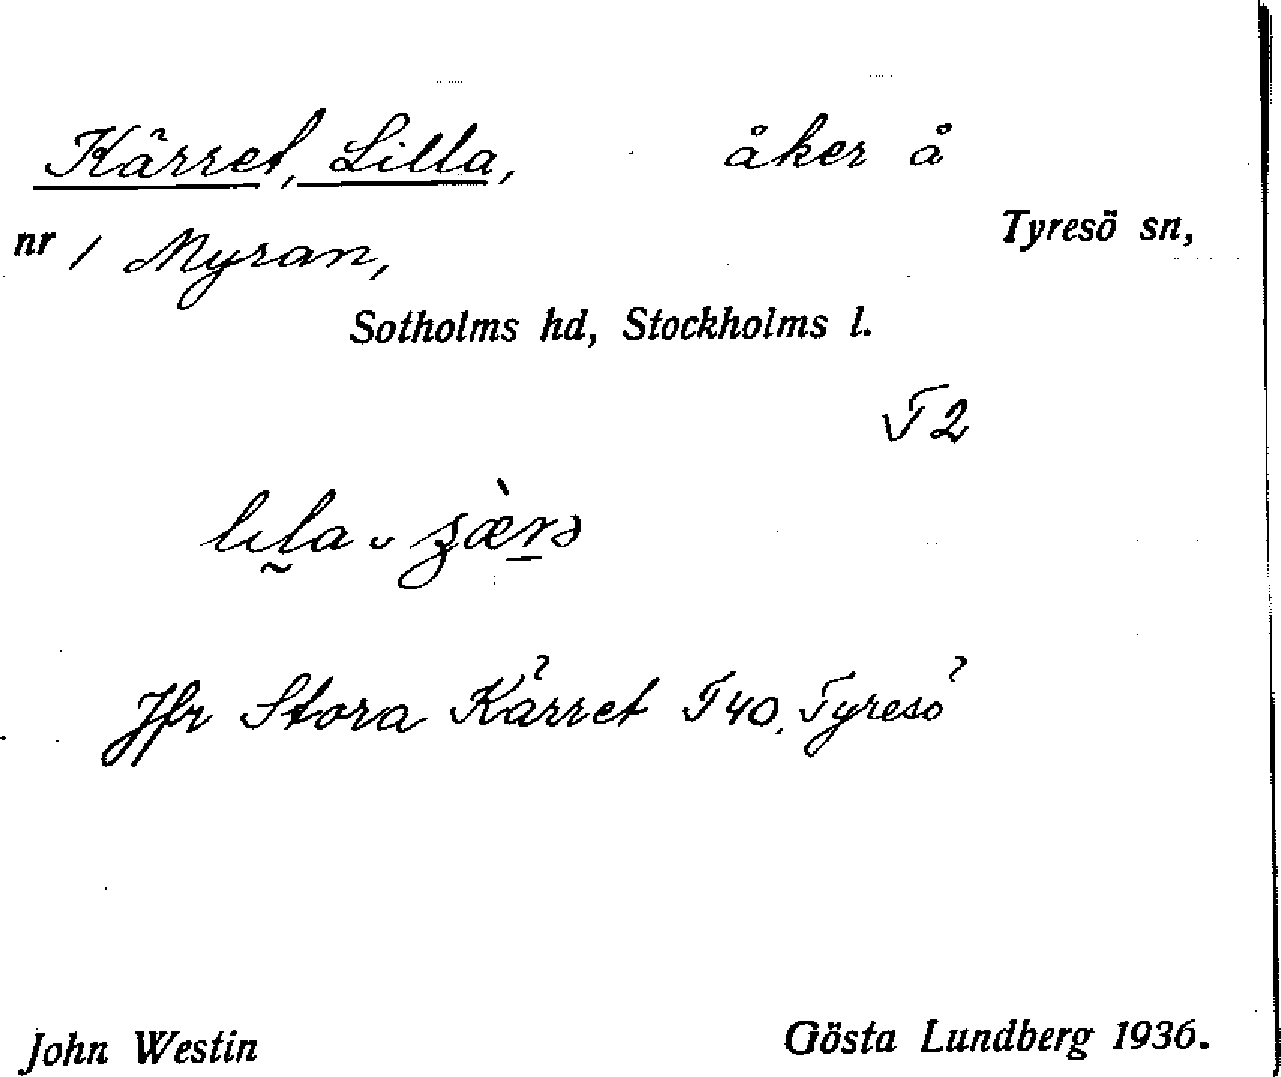 Kärret, Lilla, åker å
nr 1 Myran, Tyresö sn,
Sotholms hd, Stockholms l.
T2
Jfr Stora Kärret T40, Tyresö
John Westin Gösta Lundberg 1936.